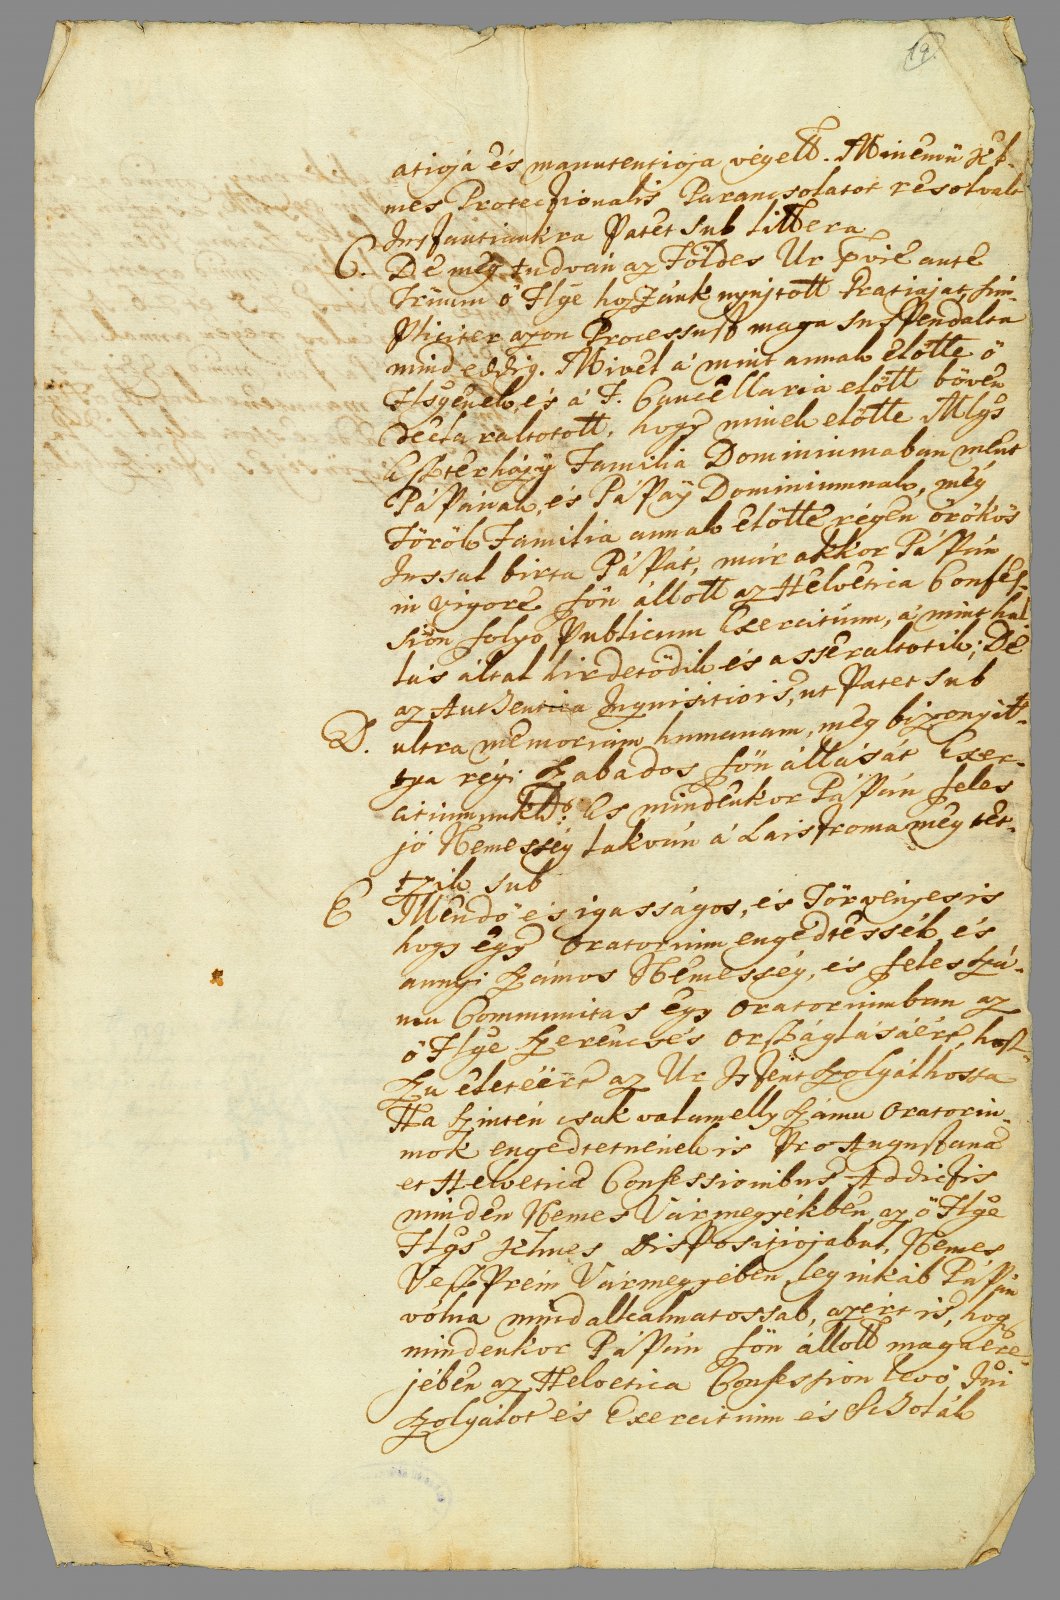 19.
atioja és manutentioja végett. Minémü kel-
mes Protectionalis Parancsolatot resolvalt
Instantiankra Patet sub littera
C. De még tudván az Földes Ur
ő Flge hozzánk nyujtott Gratiajat, sim-
pliciter azon Processust maga suspendalta
mind eddig. Mivel a' mint annak előtte ő
Flségének, és a' F. Cancellaria előtt bőven
declaraltatott, hogy minek előtte Mlgs
Eszterházÿ Familia Dominiumaban ment
Pápának, és Pápaÿ Dominiumnak, még
Török Familia annak előtte régen örökös
Jussal birta Pápát, már akkor Pápán
in vigore fön állott az Helvetica Confes-
sión folyo Publicum Exercitium, a' mint hal-
lás által hirdetődik és asseraltatik; De
az Authentica Inquisitio is, ut Patet sub
D. ultra memoriam humanam, meg bizonyitt-
tya régi szabados fön állását Exer-
citiumunk És mindenkor Pápán jeles
jó Nemesség lakván a' Laistroma meg tet-
tzik sub
E Méltó és igasságos, és Törvényes is
hogy egy Oratorium engedtessék és
annyi számos Nemesség, és jeles szá-
mu Communitas egy Oratoriumban az
ő Flge szerencsés országlásáért, hosz-
szu életéért az Ur Istent szolgálhossa
Ha szintén csak valamelly számu Oratoriu-
mok engedtetnének is Pro Augustanae
et Helveticae Confessionibus Addictis
minden Nemes Vármegyékben, az ő Flge
Flgs klmes Dispositiojabul, Nemes
Veszprém Vármegyében leg inkáb Pápán
vólna mind alkalmatossab, azért is, hogy
mindenkor Pápán fön állott maga ere-
jében az Helvetica Confession levő Jsni
szolgálot és Exercitium és Scholák